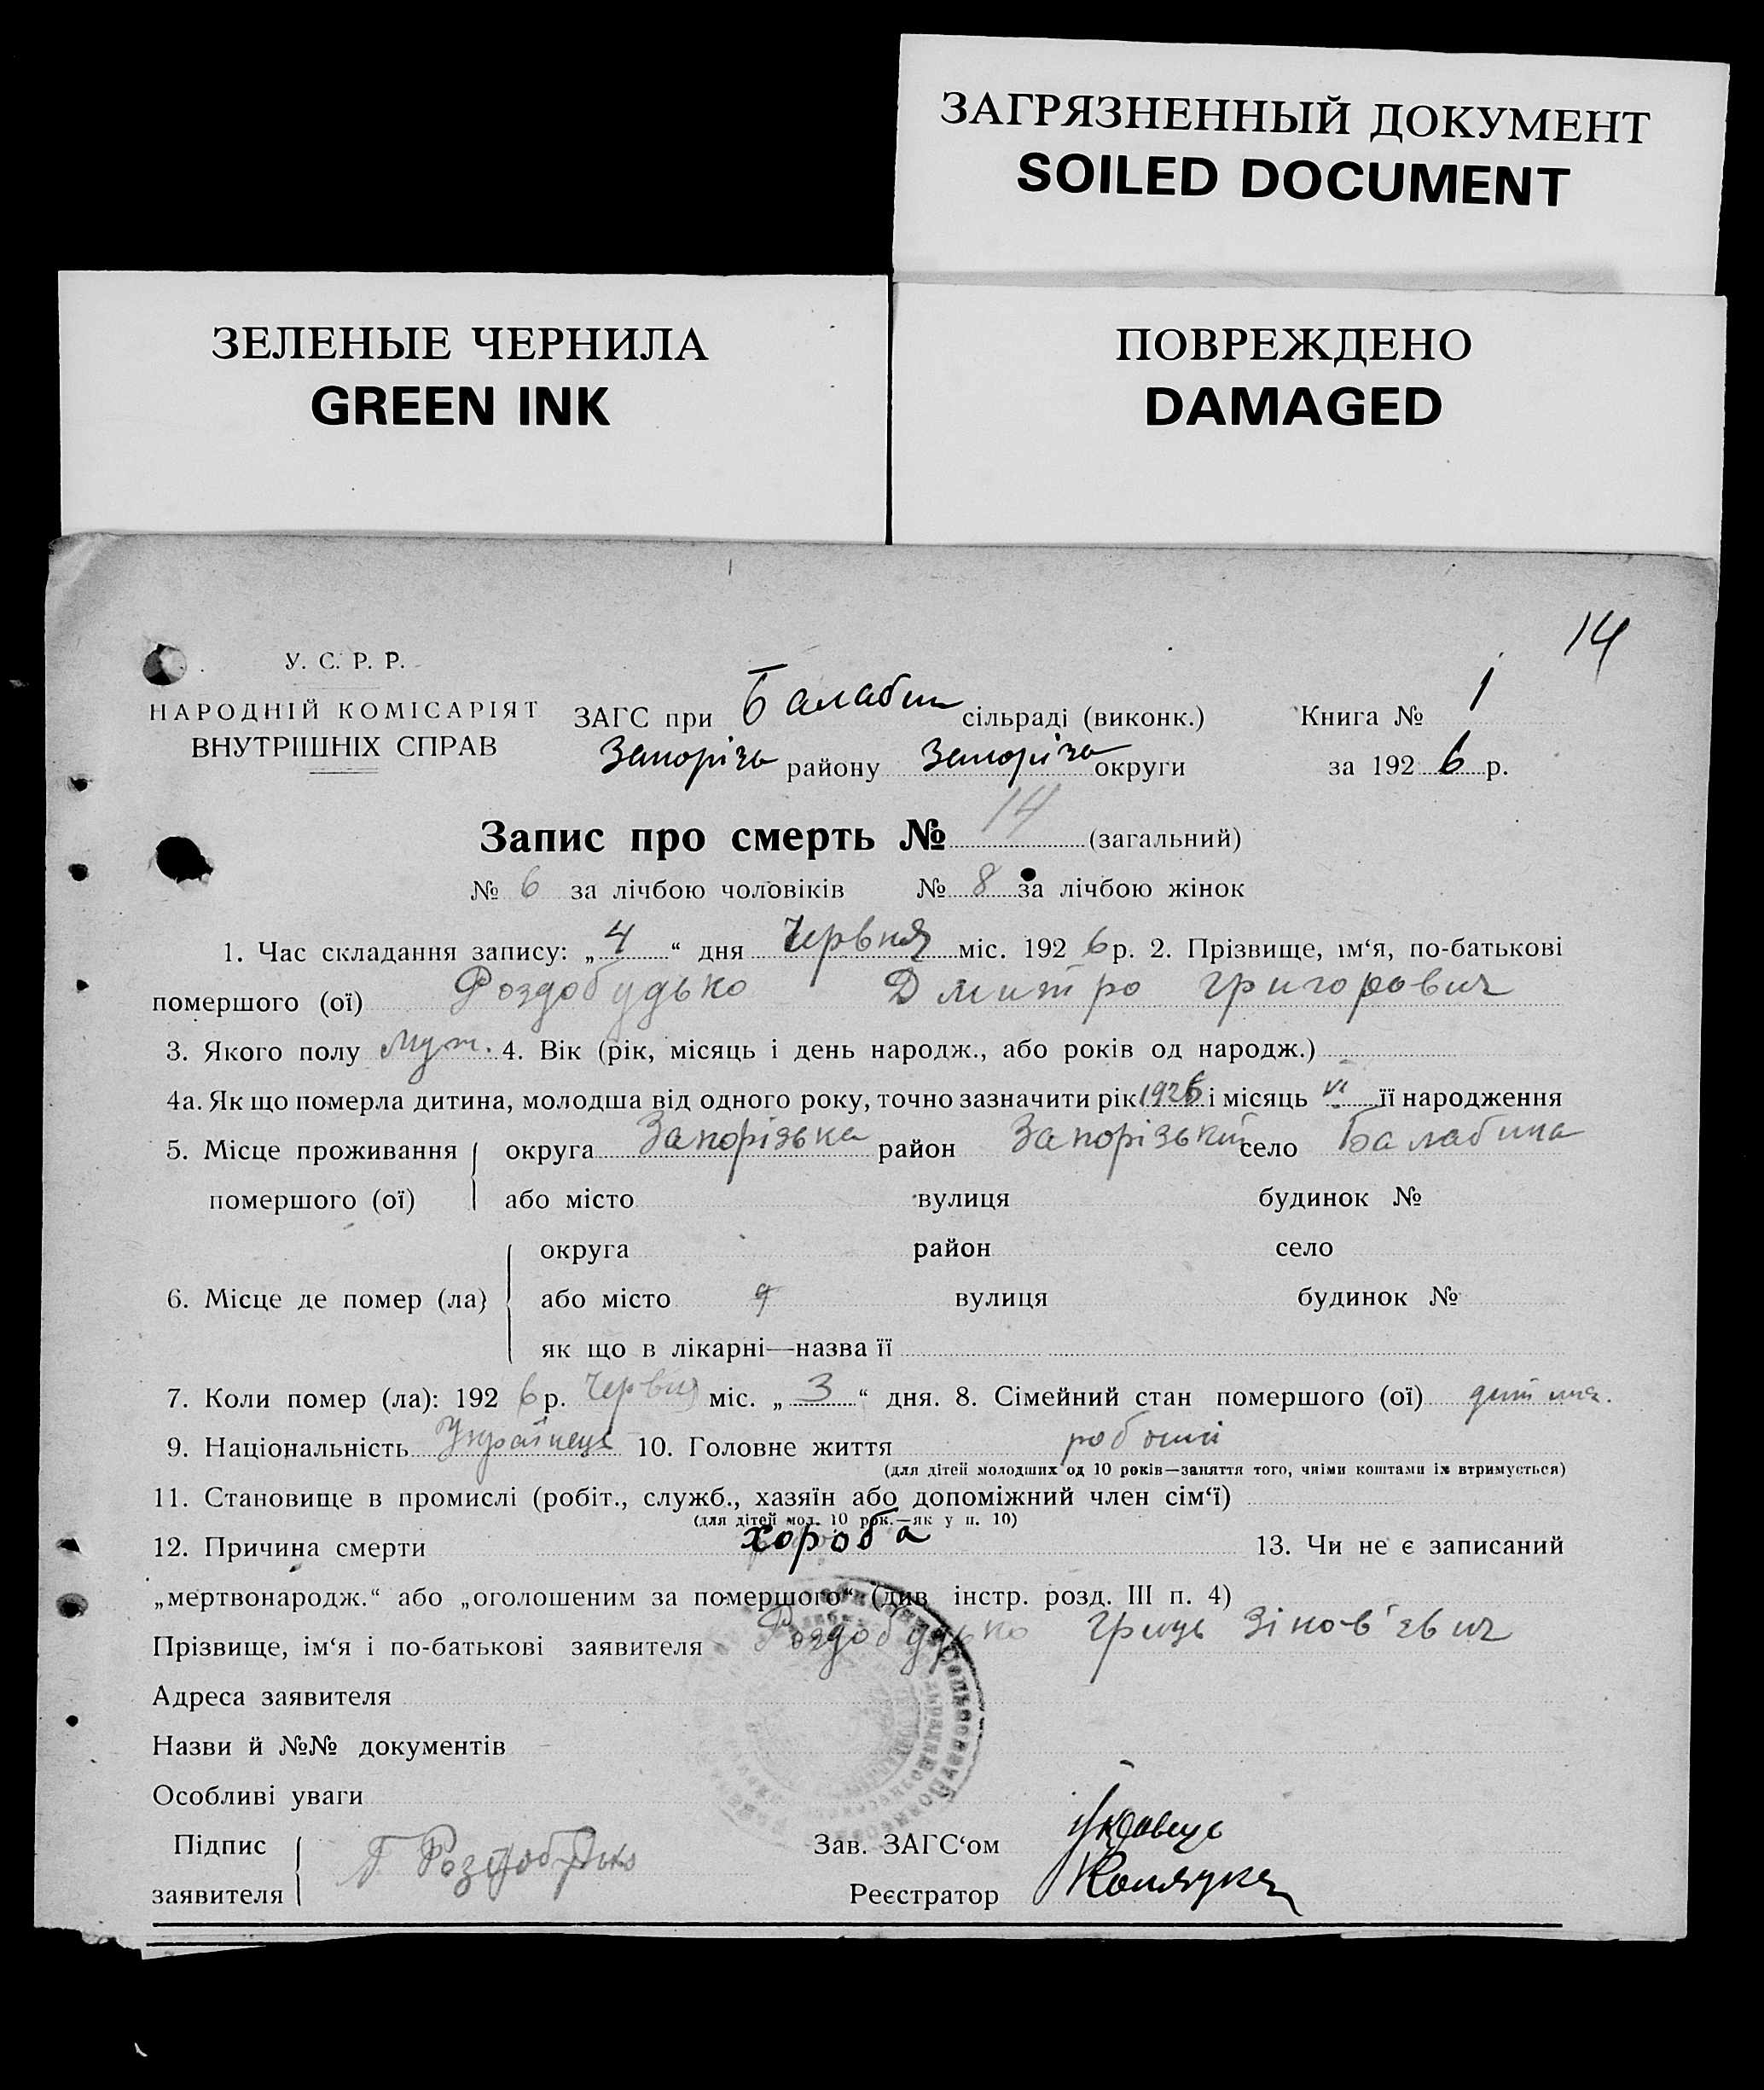 ЗАГРЯЗНЕННЫЙ ДОКУМЕНТ
SOILED DOCUMENT
ЗЕЛЕНЫЕ ЧЕРНИЛА
GREEN INK
ПОВРЕЖДЕНО
DAMAGED
14
У. С. Р. Р.
НАРОДНІЙ КОМІСАРІЯТ
ВНУТРІШНІХ СПРАВ
ЗАГС при Балабин сільраді (виконк.) Книга № 1
Запорізь району Запорізь округи за 1926 р.
Запис про смерть № 14 (загальний)
№ 6 за лічбою чоловіків № 8 за лічбою жінок
1. Час складання запису: „4“ дня Червня міс. 1926 р. 2. Прізвище, ім‘я, по-батькові
помершого (ої) Роздобудько Дмитро Григорович
3. Якого полу Муж. 4. Вік (рік, місяць і день народж., або років од народж.)
4а. Як що померла дитина, молодша від одного року, точно зазначити рік 1926 і місяць VI її народження
5. Місце проживання округа Запорізька район Запорізький село Балабина
помершого (ої) або місто вулиця будинок №
округа район село
6. Місце де помер (ла) або місто вулиця будинок №
як що в лікарні—назва її
7. Коли помер (ла): 1926 р. Червня міс. „3“ дня. 8. Сімейний стан помершого (ої) дитина.
9. Національність Українець 10. Головне життя робочий
(для дітей молодших од 10 років—заняття того, чиїми коштами їх втримується)
11. Становище в промислі (робіт., служб., хазяїн або допоміжний член сім‘ї)
(для дітей мол. 10 рок.—як у п. 10)
12. Причина смерти хороба 13. Чи не є записаний
„мертвонародж.“ або „оголошеним за помершого“ (див інстр. розд. III п. 4)
Прізвище, ім‘я і по-батькові заявителя Роздобудько Гриць Зінов'євич
Адреса заявителя
Назви й №№ документів
Особливі уваги
Підпис
заявителя Г Роздобудько
Зав. ЗАГС‘ом
Реєстратор